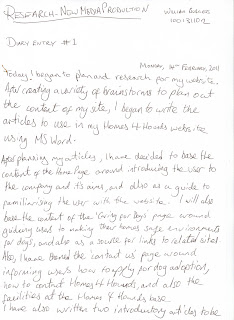 RESEARCH - NEW MEDIA PRODUCTION
DIARY ENTRY #1
Monday, 14th February, 2011
Today I began to plan and research for my website.
After creating a variety of brainstorms to plan out
the content of my site, I began to write the
articles to use in my Homes 4 Hounds website
using MS Word.
After planning my articles, I have decided to base the
content of the Home Page around introducing the user to
the company and its aims, and also as a guide to
familiarising the user with the website. I will also
base the content of the 'Caring for Dogs' page around
guiding users to making their homes safe environments
for dogs, and also as a source for links to related sites.
Also, I have themed the contact us page around
informing users how to apply for dog adoption,
how to contact Homes 4 Hounds, and also the
facilities at the Homes 4 Hounds base.
I have also written two introductory articles to be